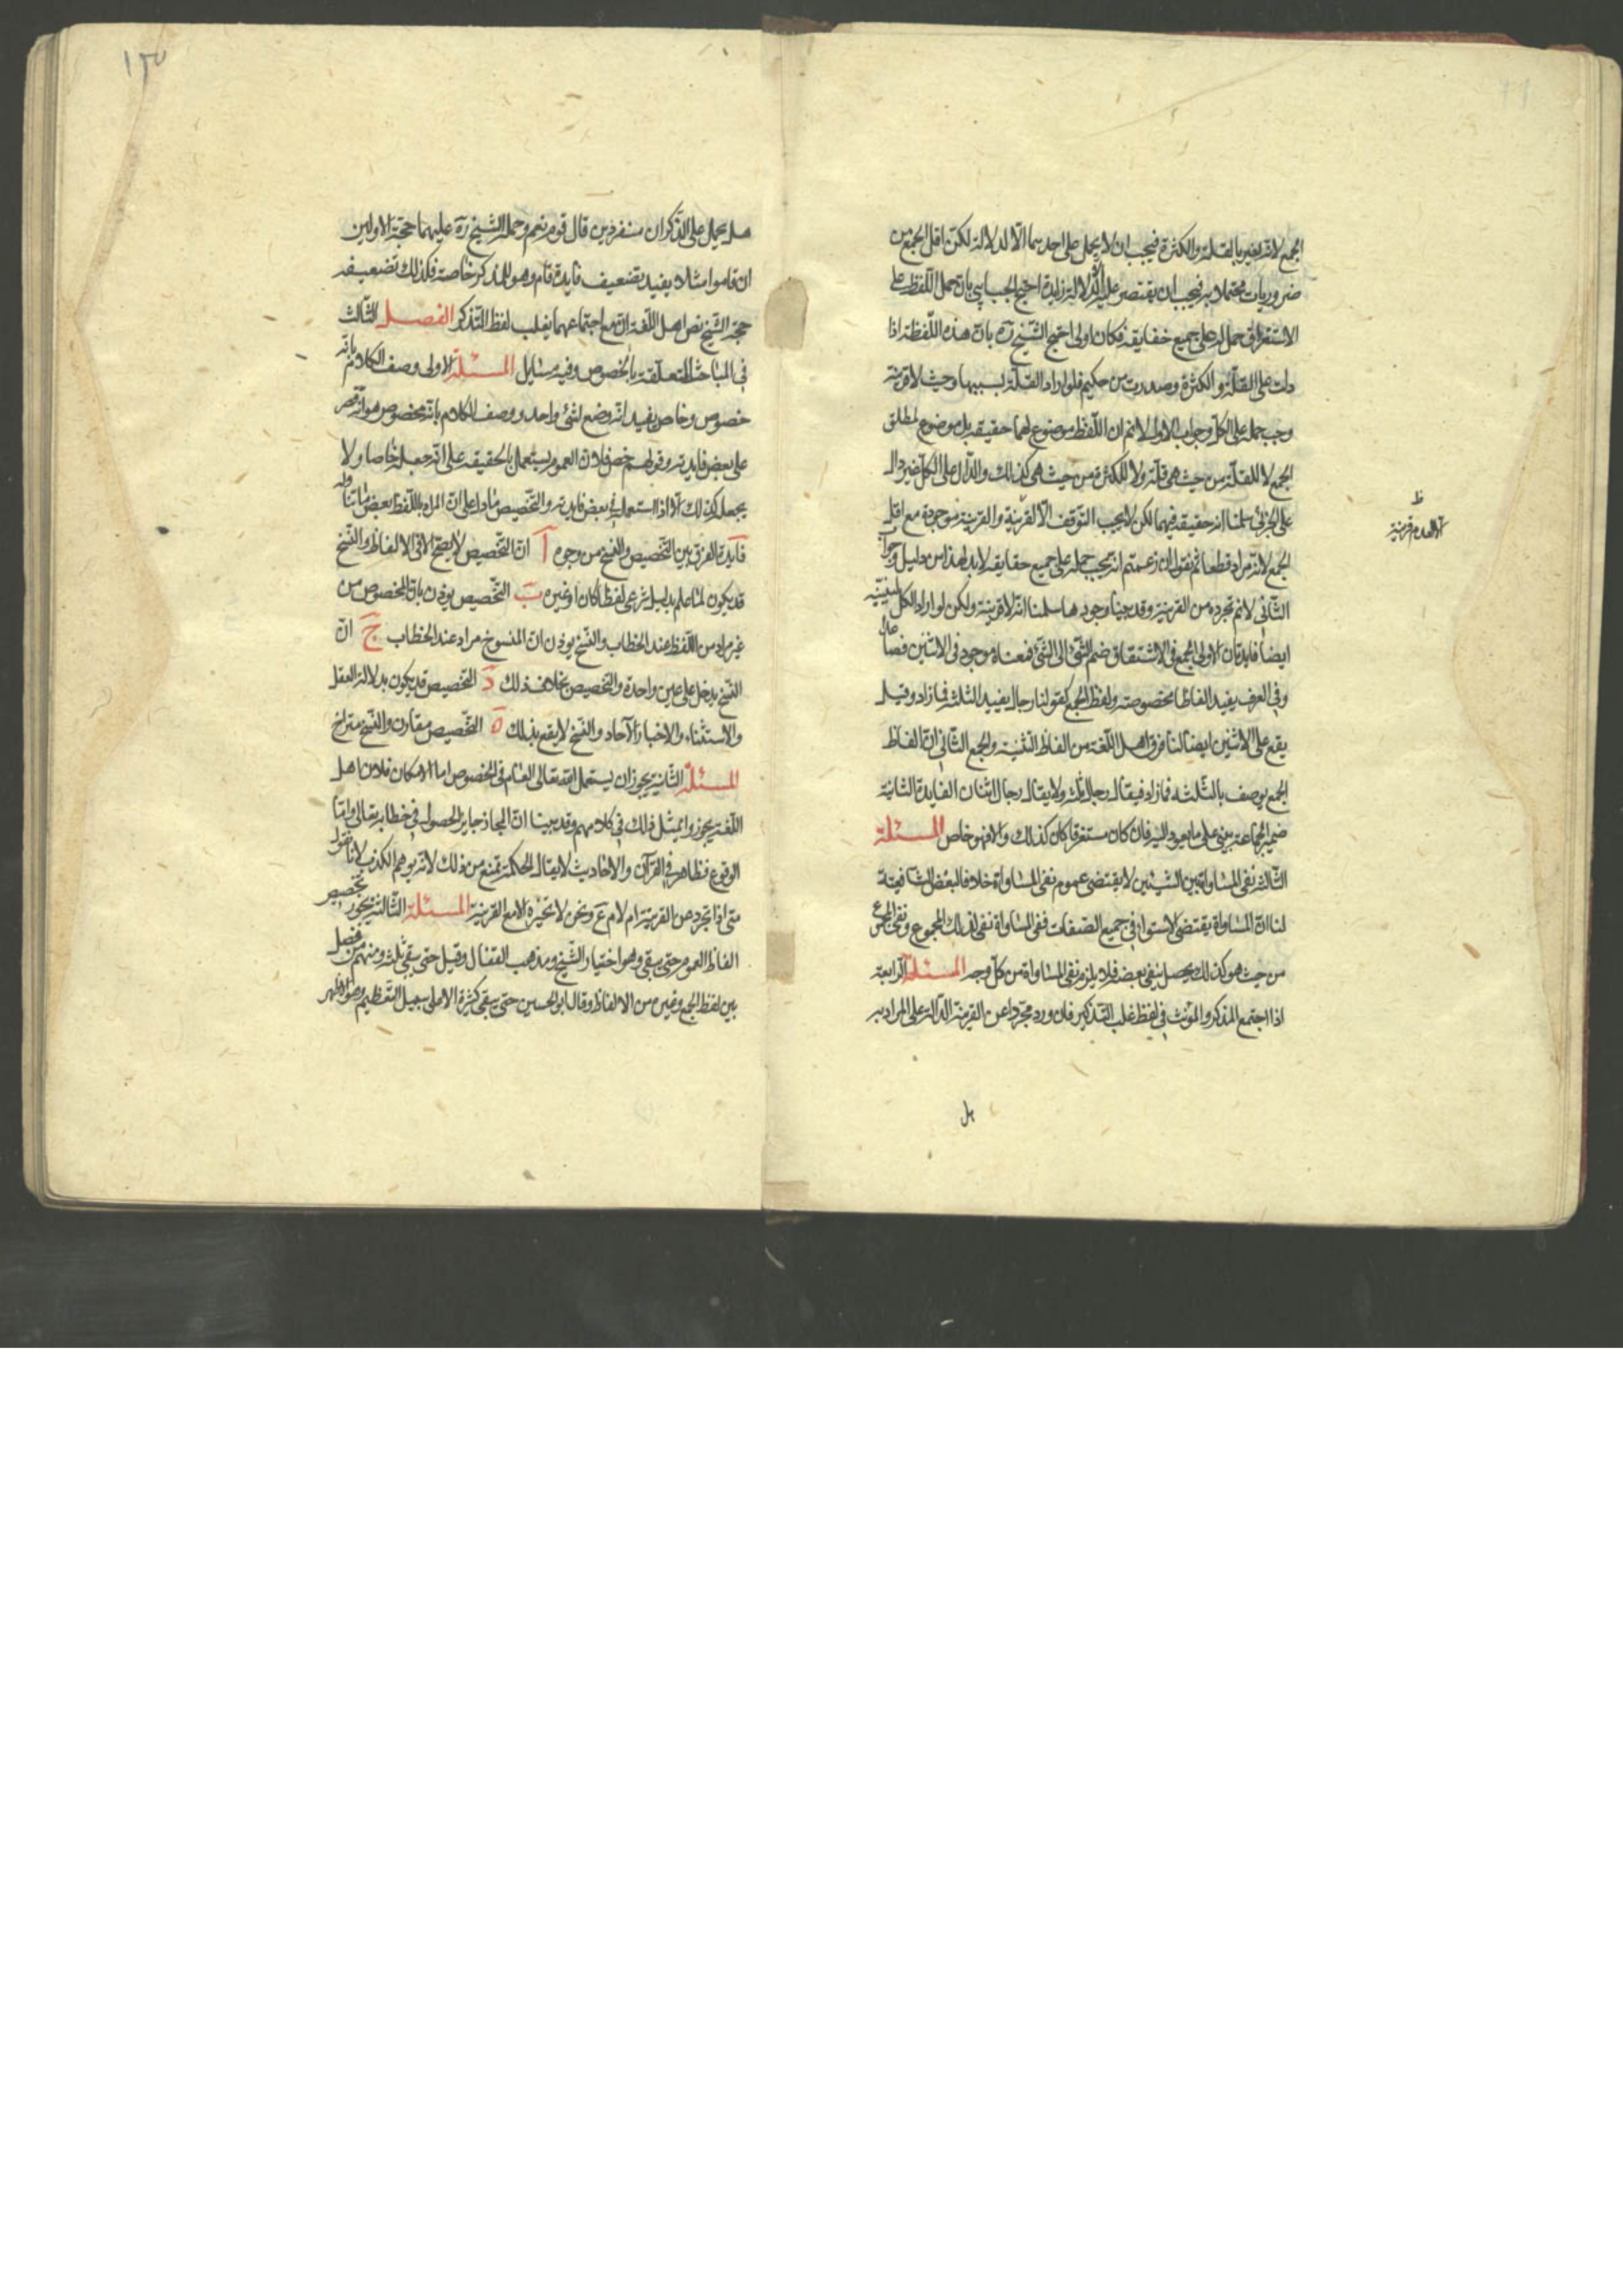 الجمع لانه يعبر بالقلة والكثرة فيجب ان لا يحمل على احدهما الا لدلالة لكن اقل الجمع من
ضروريات محتملاته فيجب ان يقتصر عليه الا لدلالة زايدة احتج الجبايى بان حمل اللفظ على
الاستغراق حمل له على جميع حقايقه فكان اولى احتج الشيخ ره بان هذه اللفظة اذا
دلت على القلة والكثرة وصدرت من حكيم فلو اراد القلة لبينها وحيث لا قرينة
وجب حمله على الكل وجواب الاول لا نم ان اللفظ موضوع لهما حقيقة بل موضوع لمطلق
الجمع لا للقلة من حيث هى قلة ولا للكثرة من حيث هى كذلك والدال على الكل غير دال
على الجزئى سلمنا انه حقيقة فيهما لكن لا يجب التوقف الا لقرينة والقرينة موجودة مع اقل
الجمع لانه مراد قطعا ثم نقول ان زعمتم انه يجب حمله على جميع حقايقه لابد لهذا من دليل وجواب
الثانى لا نم تجرده من القرينة وقد بينا وجودها سلمنا انه لا قرينة ولكن لو اراد الكل لبينه
ايضا فايدتان الاولى الجمع فى الاشتقاق ضم الشئ الى الشئ فمعناه موجود فى الاثنين فصاعدا
وفى العرف يفيد الفاظا مخصوصة ولفظ الجمع كقولنا رجال يفيد الثلثة فما زاد وقيل
يقع على الاثنين ايضا لنا فرق اهل اللغة من الفاظ التثنية والجمع الثانى ان الفاظ
الجمع يوصف بالثلثه فما زاد فيقال رجال ثلثه ولا يقال رجال اثنان الفايدة الثانية
ضمير الجماعة يبنى على ما يعود اليه فان كان مستغرقا كان كذلك والا فهو خاص المسئلة
الثالثه نفى المساواة بين الشيئين لا يقتضى عموم نفى المساواة خلافا لبعض الشافعية
لنا ان المساواة يقتضى الاستواء فى جميع الصفات فنفى المساواة نفى لذلك المجموع ونفى المجموع
من حيث هو كذلك يحصل بنفى بعضه فلا يلزم نفى المساواة من كل وجه المسئلة الرابعة
اذا اجتمع المذكر والمؤنث فى لفظ غلب التذكير فان ورد مجردا عن القرينة الدالة على المراد به
هل
ظ
الا لعدم قرينة
١٣
هل يحمل على الذكران منفردين قال قوم نعم وحمله الشيخ ره عليهما حجة الاولين
ان قاموا مثلا يفيد تضعيف فايدة قام وهو للمذكر خاصة فكذلك تضعيفه
حجة الشيخ نص اهل اللغة ان مع اجتماعهما يغلب لفظ التذكير الفصل الثالث
فى المباحث المتعلقة بالخصوص وفيه مسايل المسئلة الاولى وصف الكلام بانه
خصوص وخاص يفيد انه وضع لشئ واحد ووصف الكلام بانه مخصوص هو انه قصر
على بعض فايدته وقولهم خص فلان العموم يستعمل بالحقيقه على انه جعله خاصا ولا
يجعل كذلك الا اذا استعمله فى بعض فايدته والتخصيص ما دل على ان المراد باللفظ بعض ما تناوله
فايدة الفرق بين التخصيص والنسخ من وجوه آ ان التخصيص لا يصح الا فى الالفاظ والنسخ
قد يكون لما علم بدليل شرعى لفظا كان او غيره ب التخصيص يوذن بان المخصوص من
غير مراد من اللفظ عند الخطاب والنسخ يوذن ان المنسوخ مراد عند الخطاب ج ان
النسخ يدخل على عين واحدة والتخصيص بخلاف ذلك د التخصيص قد يكون بدلالة العقل
والاستثناء والاخبار الآحاد والنسخ لا يقع بذلك ه التخصيص مقارن والنسخ متراخ
المسئلة الثانية يجوز ان يستعمل الله تعالى العام فى الخصوص اما الامكان فلان اهل
اللغة يجوزوا بمثل ذلك فى كلامهم وقد بينا ان المجاز جايز الحصول فى خطابه تعالى واما
الوقوع فظاهر فى القرآن والاحاديث لا يقال الحكمة تمنع من ذلك لانه يوهم الكذب لانا نقول
متى اذا تجرد من القرينة ام لا م ع ونحن لا نجيزه الا مع القرينة المسئلة الثالثة يجوز تخصيص
الفاظ العموم حتى يبقى وهو اختيار الشيخ ومذهب القفال وقيل حتى يبقى ثلثه ومنهم من فصل
بين لفظ الجمع وغيره من الالفاظ وقال ابو الحسين حتى يبقى كثرة الا على سبيل التعظيم وهو الاظهر